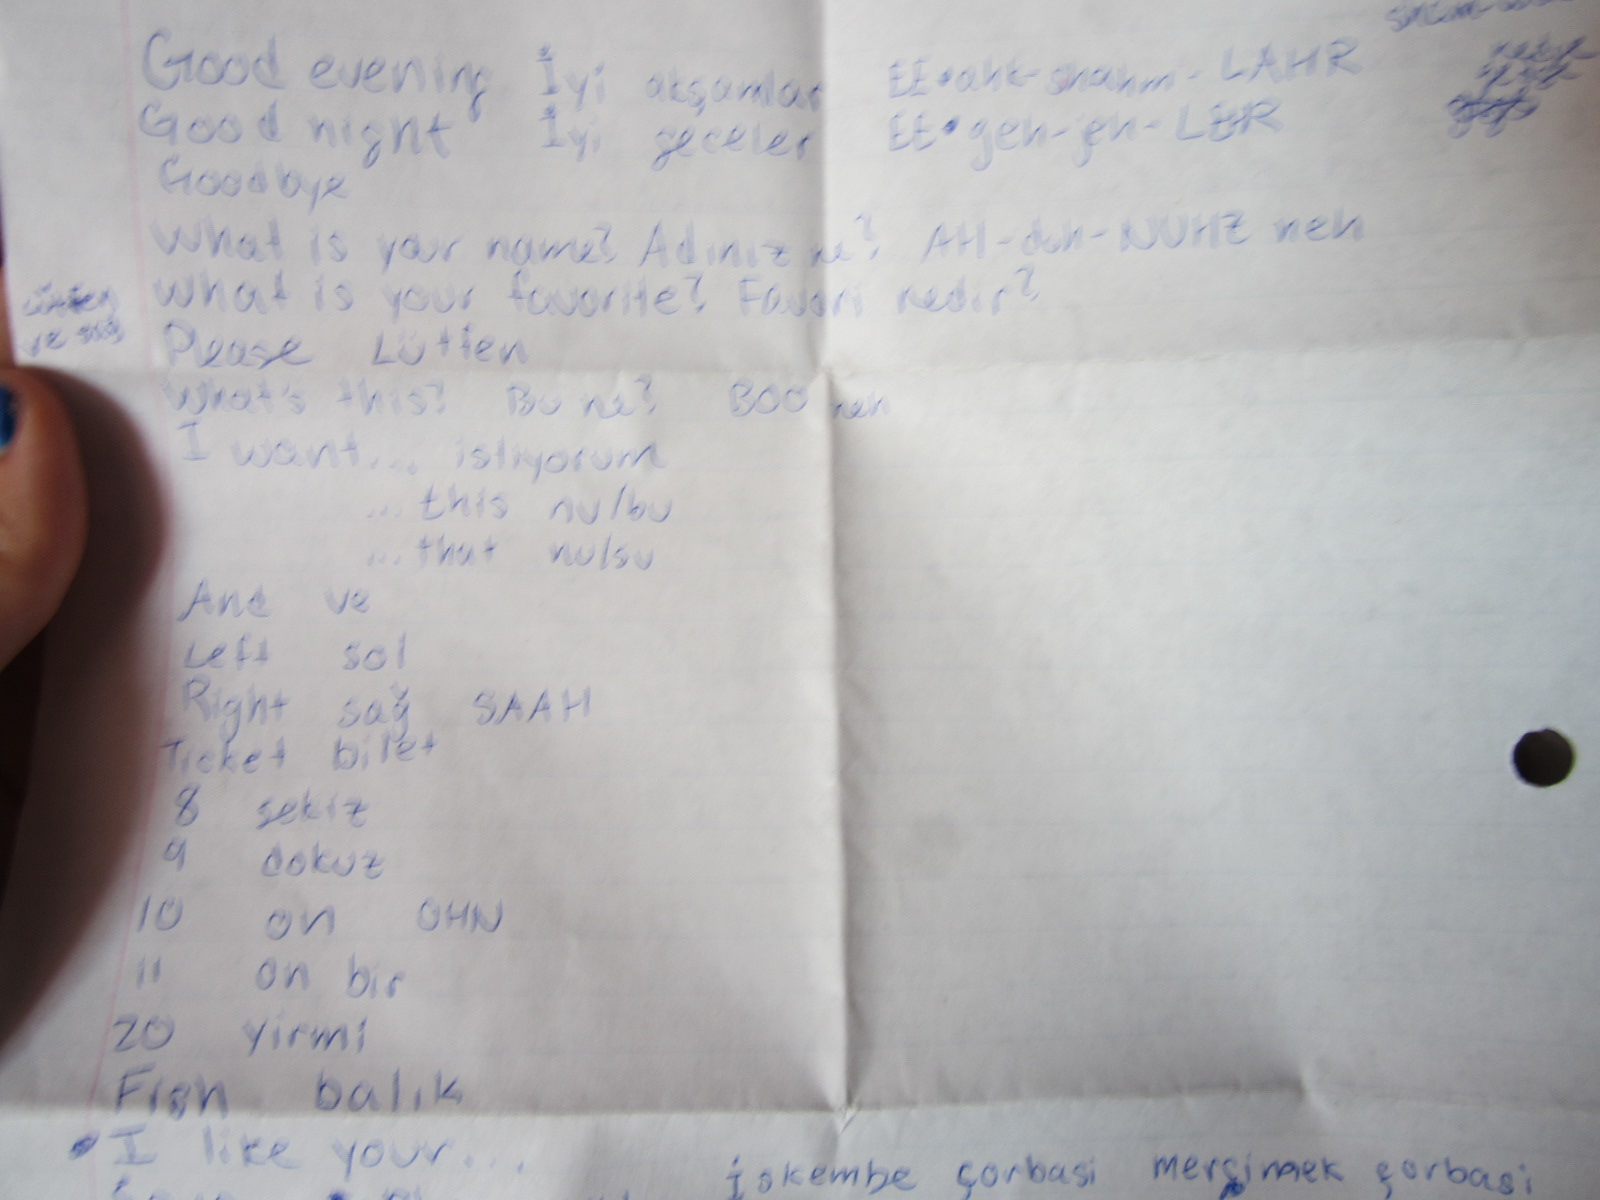 Good evening İyi akşamlar EE•ahk-shahm-LAHR
Good night İyi geceler EE•geh-jeh-LER
Goodbye
What is your name? Adınız ne? AH-duh-NUHZ neh
What is your favorite? Favori nedir?
Lütfen
Please Lütfen
What's this? Bu ne? BOO neh
I want... istiyorum
... this nu/bu
... that nu/su
And ve
Left sol
Right sağ SAAH
Ticket bilet
8 sekiz
9 dokuz
10 on OHN
11 on bir
20 yirmi
Fish balık
• I like your...
İşkembe çorbasi merçimek çorbasi